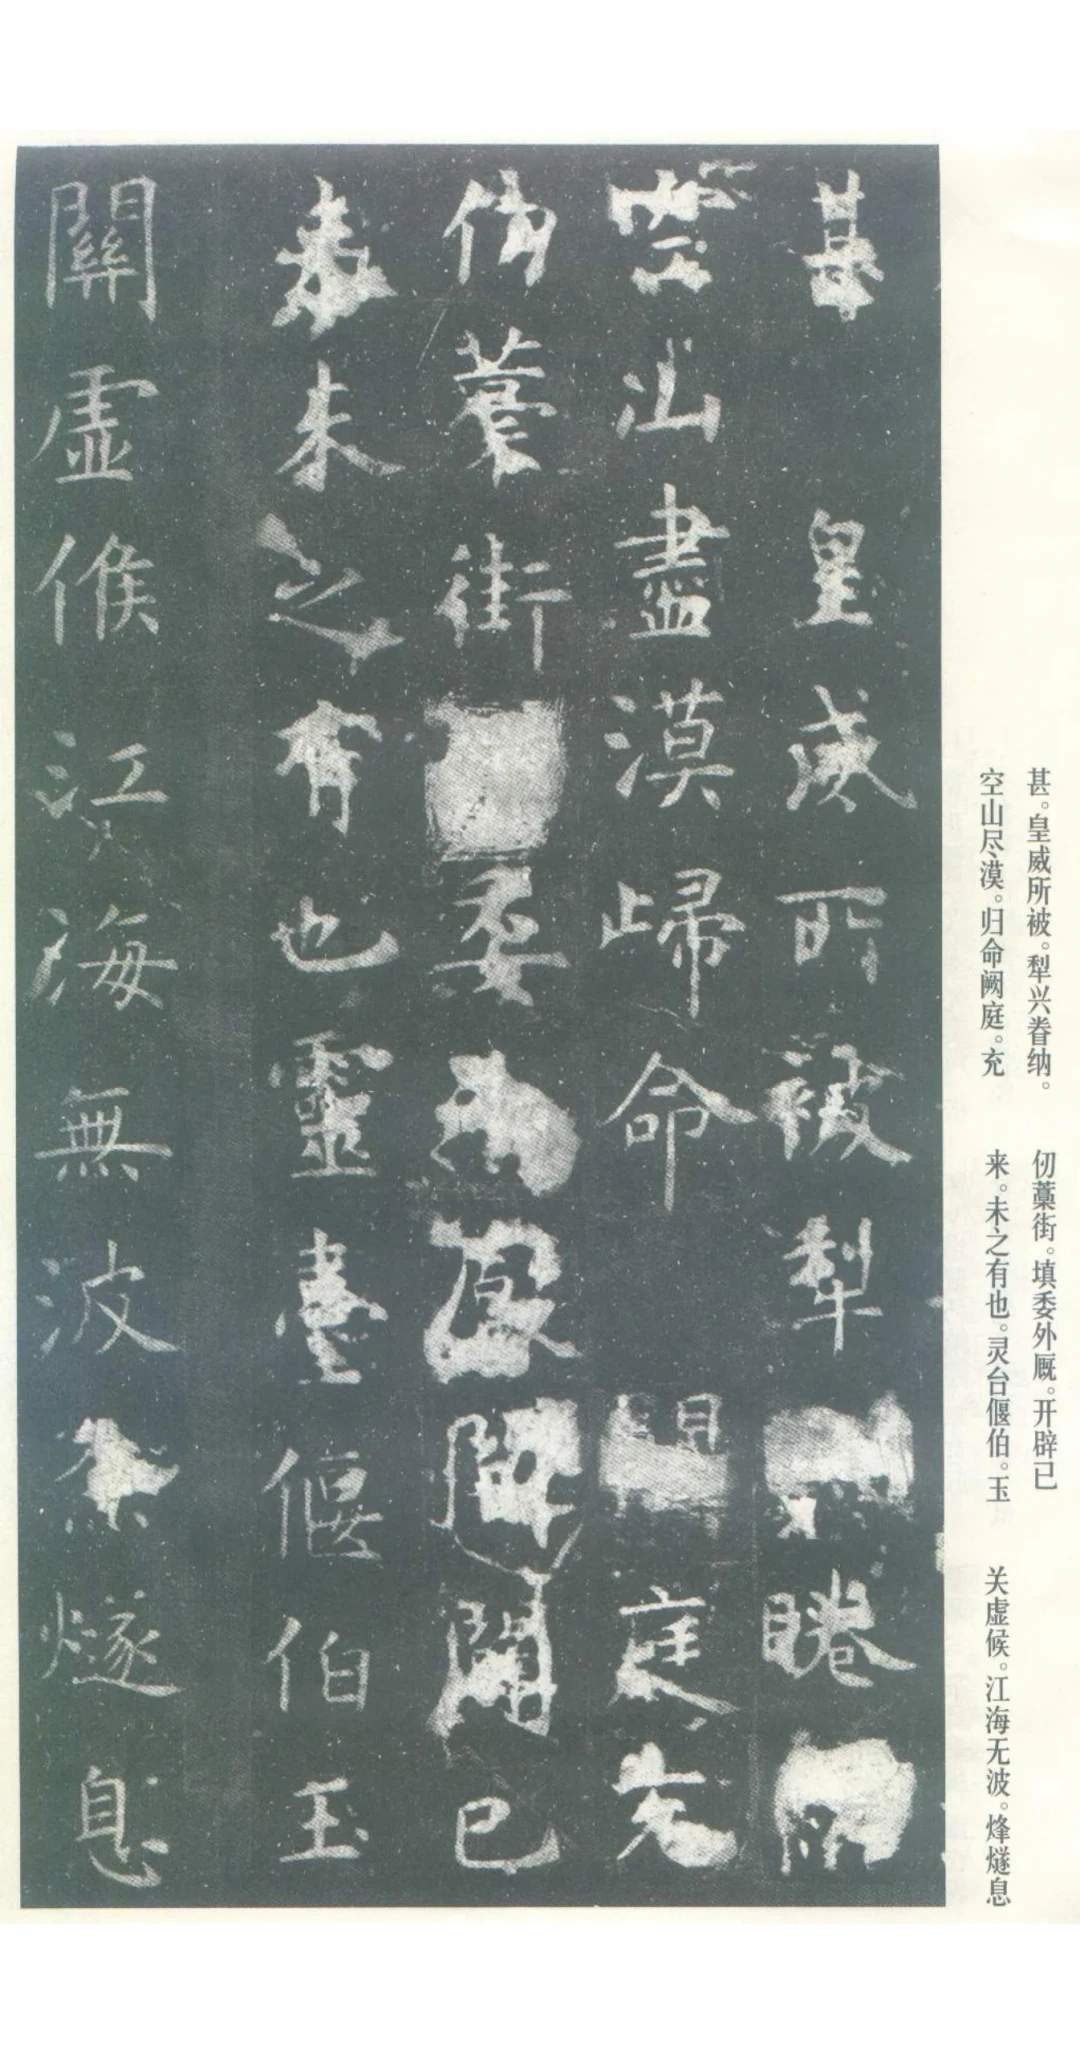 甚 皇威所被犁 睠
山盡漠歸命 庭充
仞藁街 委 廄開闢已
來未之有也靈臺偃伯玉
關虛候江海無波烽燧息
甚。皇威所被。犁兴眷纳。
空山尽漠。归命阙庭。充
仞藁街。填委外厩。开辟已
来。未之有也。灵台偃伯。玉
关虚候。江海无波。烽燧息